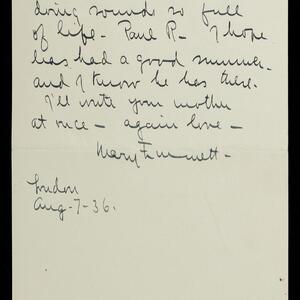 doing sounds so full
of life - Paul R - I hope
has had a good summer -
and I know he has there.
I'll write your mother
at once - again love -
Mary Emmett -
London
Aug - 7 - 36.